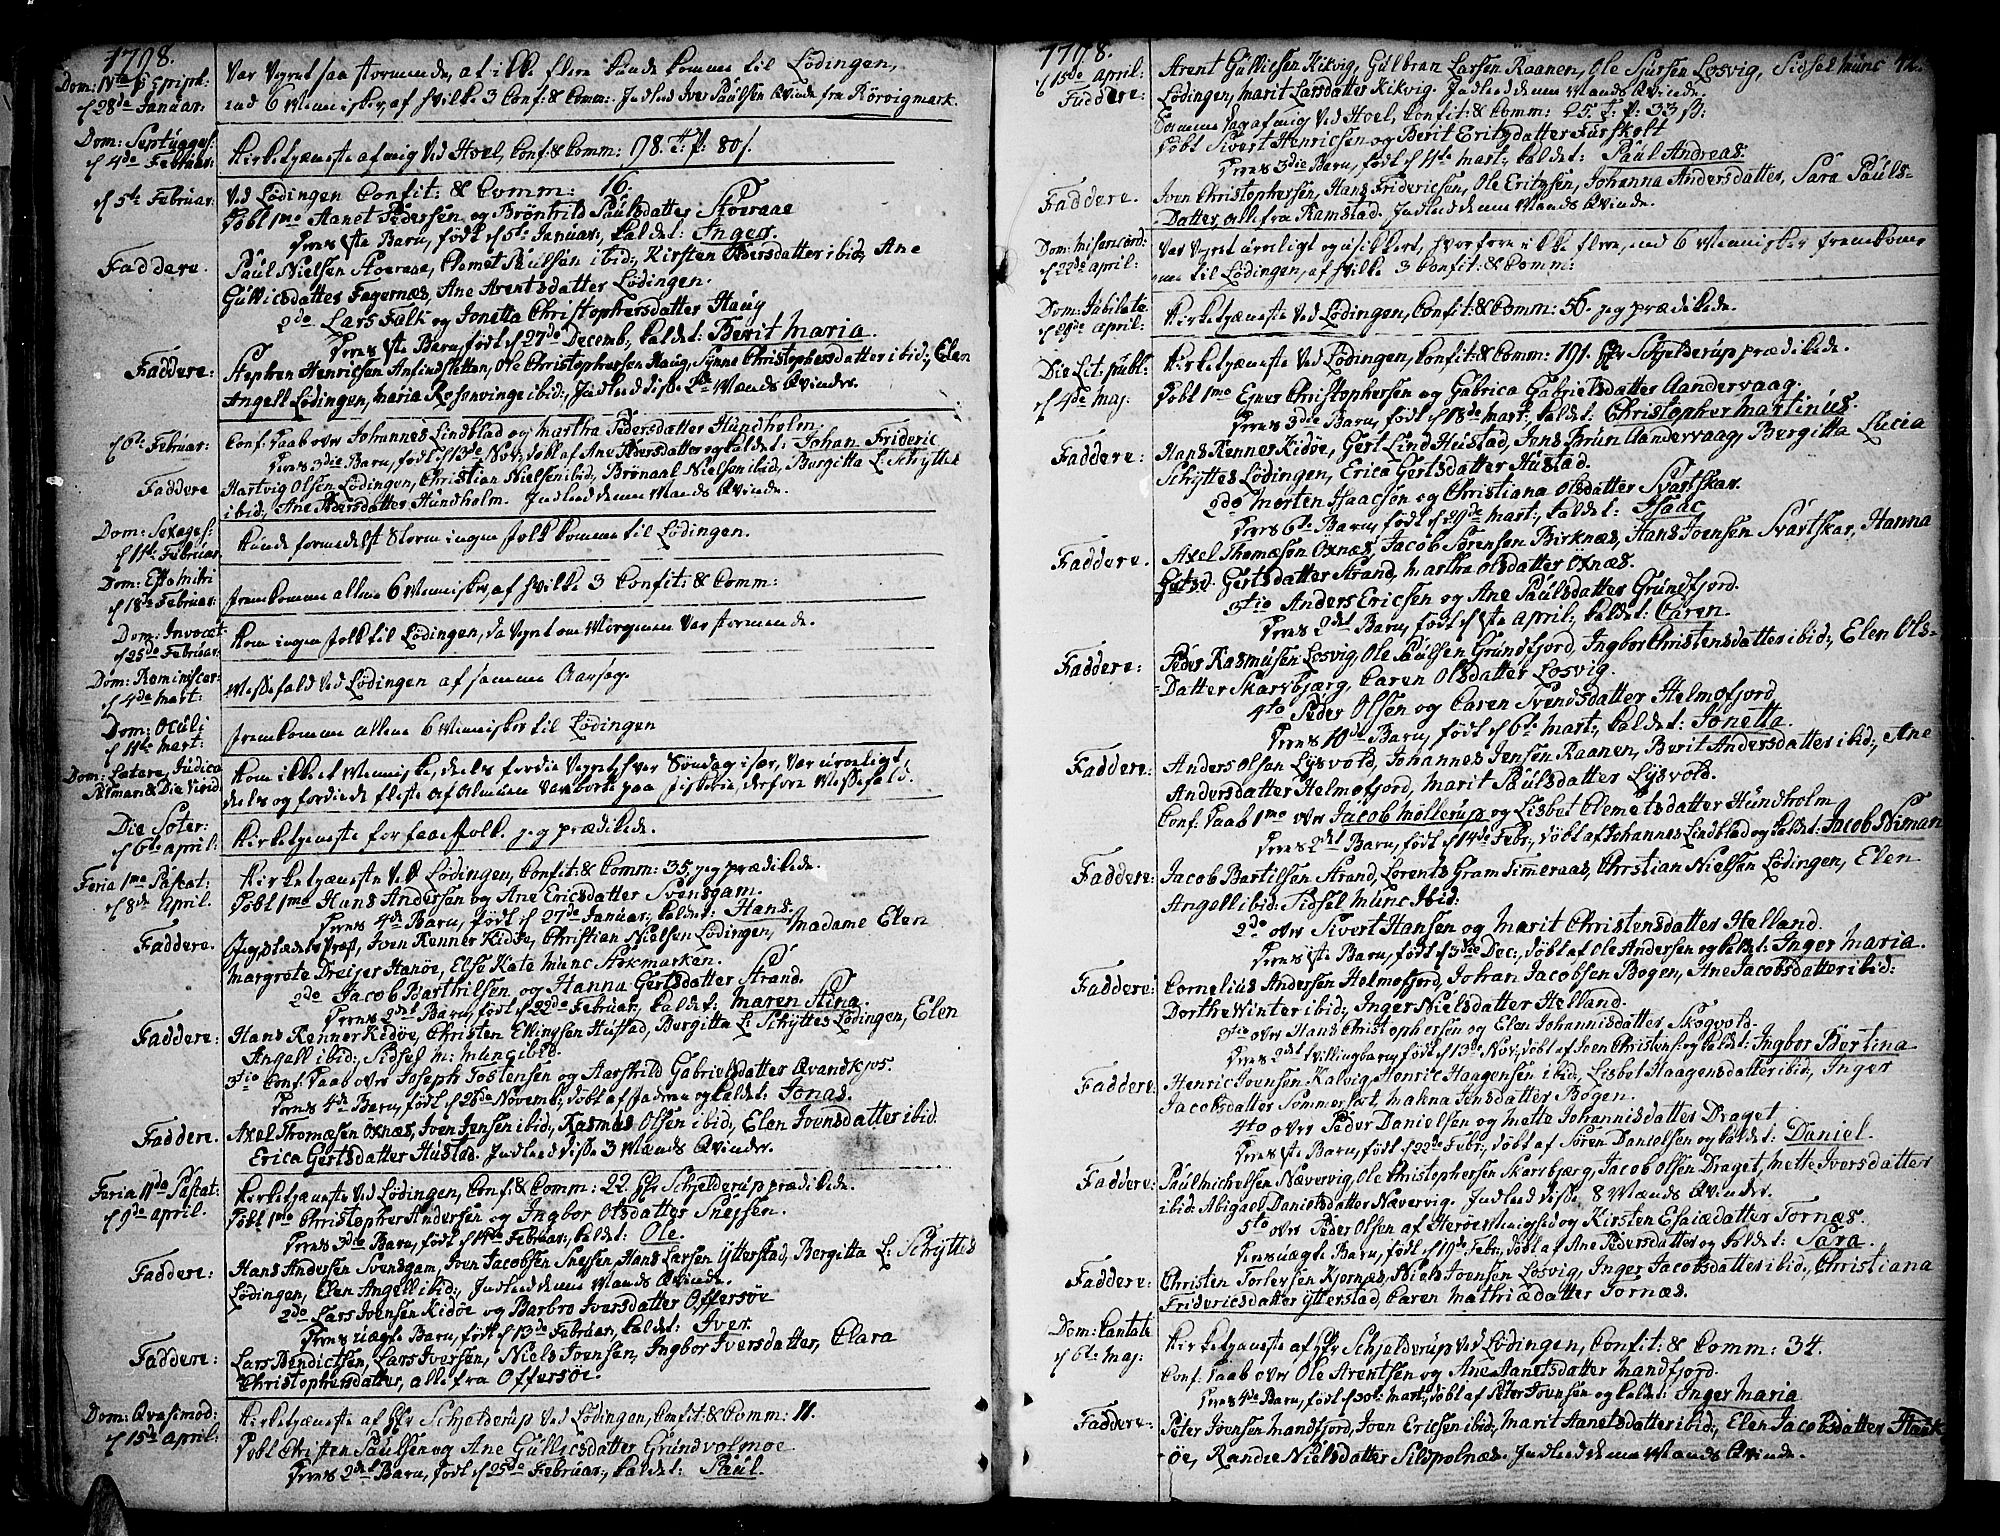 1798.
Dom: IVta p: Epiph:
d 28de Januar.
Var Veyret saa stormende, at ikke flere kunde komme til Lødingen,
end 6 Mennisker, af hvilke 3 Conf: & Comm: Indleed Iver Paulsen Qvinde fra Rörvigmark.
Dom: Septuages:
d 4de Februar:
Kirketjeneste af mig ved Hoel, Conf: & Comm: 98. T: p: 80 s.
d 5te Februar:
Ved Lødingen Confit: & Comm: 16.
Döbt 1mo Aanet Pedersen, og Bröntrild Paulsdatter Stoeraae
Deres 1ste Barn, födt d 5te Januar:, kaldet: Inger.
Faddere.
Paul Nielsen Stoeraae, Clemet Paulsen ibid:, Kirsten Pedersdatter ibid:, Ane
Gullicsdatter Fagernæs, Ane Arentsdatter Lödingen.
2do Lars Falk og Jonetta Christophersdatter Haug
Deres 1ste Barn, födt d 27de Decemb:, kaldet: Berit Maria.
Faddere:
Stephen Henricsen Anfindsletten, Ole Christophersen Haug, Synne Christophersdatter ibid:, Elen
Angell Lödingen, Maria Rosenvinge ibid:, Indleed disse 2de Mands Qvinder.
d 6te Februar:
Conf: Daab over Johannes Lindblad og Martha Pedersdatter Hundholm.
Deres 3die Barn, födt d 13de Nov:, döbt af Ane Pedersdatter og kaldet: Johan Frideric
Faddere
Hartvig Olsen Lödingen, Christian Nielsen ibid:, Brönaal Nielsen ibid:, Bergitta L: Schyttes
ibid:, Ane Pedersdatter Hundholm. Indleed denne Mands Qvinde.
Dom: Sexages:
d 11te Februar:
Kunde formedelst Storm ingen folk komme til Lødingen.
Dom: Esto Mihi
d 18de Februar:
Fremkomme allene 6 Mennisker, af hvilke 3 Confit: & Comm:
Dom: Invocet
d 25de Februar:
Kom ingen folk til Lødingen, da Veyret om Morgenen var stormende.
Dom: Reminiscer:
d 4de Mart:
Messefald ved Lödingen af samme Aarsag.
Dom: Oculi:
d 11te Mart:
Fremkomme allene 6 Mennisker til Lödingen
Dom: Lætare, Judica
Palmar: & Die Virid:
Kom ikke et Menniske, deels fordie Veyret hver Söndag især, var uroeligt,
deels og fordie de fleste af Almuen var borte paa fiskerie, derfore Messefald.
Die Soter:
d 6te April:
Kirketjeneste for faae folk. jeg prædikede.
Feria 1ma Pascat:
d 8de April.
Kirketjeneste ved Lödingen, Confit: & Comm: 35. jeg prædikede.
Döbt 1mo Hans Andersen og Ane Ericsdatter Svensgam.
Deres 4de Barn, födt d 27de Januar:, kaldet: Hans.
Faddere.
Iven Renner Kidöe, Christian Nielsen Lödingen, Madame Elen
Margrete Dreijer Hanöe, Else Kate Munc Stokmarken.
2do Jacob Barthilsen og Hanna Gertsdatter Strand.
Deres 2det Barn, födt d 22de Februar:, kaldet: Maren Stina.
Faddere:
Hans Renner Kidöe, Christen Ellingsen Hustad, Bergitta L: Schyttes Lödingen, Elen
Angell ibid:, Sidsel M: Munc ibid:
3tio Conf: Daab over Joseph Tostensen og Aarshild Gabrielsdatter Qvandkjos.
Deres 4de Barn, födt d 26de Novemb:, döbt af Faderen og kaldet: Jonas.
Faddere.
Axel Thomæsen Oxnæs, Iven Jensen ibid:, Rasmus Olsen ibid:, Elen Ivensdatter ibid:
Erica Gertsdatter Hustad. Indleed disse 3 Mænds Qvinder.
Feria IIda Pascat:
d 9de April.
Kirketjeneste ved Lödingen, Conf: & Comm: 22. Hr Schjelderup prædikede.
Döbt 1mo Christopher Andersen og Ingbor Olsdatter Snejsen.
Deres 3die Barn, födt d 11te Februar:, kaldet: Ole.
Faddere:
Hans Andersen Svensgam, Iven Jacobsen Snejsen, Hans Larsen Ytterstad, Bergitta L: Schyttes
Lödingen, Elen Angell ibid:, Indleed denne Mands Qvinde.
2do Lars Ivensen Kidöe og Barbro Iversdatter Offersöe
Deres uægte Barn, födt d 13de Februar:, kaldet: Iver.
Faddere:
Lars Bendictsen, Lars Iversen, Niels Ivensen, Ingbor Iversdatter, Clara
Christophersdatter, alle fra Offersöe.
Dom: Qvasimod:
d 15de April:
Kirketjeneste af Hr Schjelderup ved Lödingen, Confit: & Comm: 11.
Döbt Christen Paulsen og Ane Gullicsdatter Grundvolmoe
Deres 2det Barn, födt d 25de Februar:, kaldet: Paul.
1798.
42.
d 15de April:
Faddere:
Arent Gullicsen Kikvig, Gulbran Larsen Raanen, Ole Sjursen Losvig, Sidsel Munc
Lödingen, Marit Larsdatter Kikvig. Indleed denne Mands Qvinde.
Samme Dag af mig ved Hoel, Confit: & Comm: 25. T: p: 33 s:
Döbt Sivert Henricsen og Berit Ericsdatter Forskolt
Deres 3die Barn, födt d 11te Mart:, kaldet: Paul Andreas.
Faddere.
Iven Christophersen, Hans Fridericsen, Ole Ericsen, Johanna Andersdatter, Sara Pauls-
Datter, alle fra Ramstad. Indleed denne Mands Qvinde.
Dom: Misericord:
d 22de April:
Var Veyret uroeligt og usikkert, hvorfore ikke flere, end 6 Mennisker fremkom-
me til Lödingen, af hvilke 3 Confit: & Comm:
Dom: Jubilate
d 29de April:
Kirketjeneste ved Lödingen, Confit: & Comm: 56. jeg prædikede.
Die Lit: publ:
d 4de Maj:
Kirketjeneste ved Lödingen, Confit: & Comm: 101. Hr Schjelderup prædikede.
Döbt 1mo Ejner Christophersen og Gabrica Gabrielsdatter Aandervaag.
Deres 3de Barn, födt d 18de Mart:, kaldet: Christopher Martinus.
Faddere:
Hans Renner Kidöe, Gert Lind Hustad, Jens Brun Aandervaag, Bergitta Lucia
Schyttes Lödingen, Erica Gertsdatter Hustad.
2do Morten Isaacsen og Christiana Olsdatter Svartskar.
Deres 6te Barn, födt d 29de Mart:, kaldet: Isaac.
Faddere:
Axel Thomæsen Oxnæs, Jacob Sörensen Birknæs, Hans Ivensen Svartskar, Hanna
Gertsdatter Strand, Martha Olsdatter Oxnæs.
3tio Anders Ericsen og Ane Paulsdatter Grundfjord.
Deres 2det Barn, födt d 1ste April:, kaldet: Caren.
Faddere:
Peder Rasmusen Losvig, Ole Paulsen Grundfjord, Ingbor Christensdatter ibid:, Elen Ols-
Datter Skarsbjærg, Caren Olsdatter Losvig.
4to Peder Olsen og Caren Svendsdatter Helmofjord,
Deres 10de Barn, födt d 6te Mart:, kaldet: Jonetta.
Faddere:
Anders Olsen Lysvold, Johannes Jensen Raanen, Berit Andersdatter ibid:, Ane
Andersdatter Helmofjord, Marit Paulsdatter Lysvold.
Conf: Daab 1mo over Jacob Möllerup og Lisbet Clemetsdatter Hundholm
Deres 2det Barn, födt d 14de Febr:, döbt af Johannes Lindblad og kaldet: Jacob Niman
Faddere:
Jacob Bartilsen Strand, Lorents Gram Timeraas, Christian Nielsen Lödingen, Elen
Angell ibid: Sidsel Munc Ibid:
2do over Sivert Hansen og Marit Christensdatter Helland.
Deres 1ste Barn, födt d 3die Dec:, döbt af Ole Andersen og kaldet: Inger Maria.
Faddere:
Cornelius Andersen Helmofjord, Johan Jacobsen Bogen, Ane Jacobsdatter ibid:
Dorthe Winter ibid:, Inger Nielsdatter Helland.
3tio over Hans Christophersen og Elen Johannisdatter Skogvold.
Deres 2det Tvillingbarn, födt d 13de Nov:, döbt af Iven Christens: og kaldet: Ingbor Bertina
Faddere:
Henric Ivensen Kalvig, Henric Haagensen ibid:, Lisbet Haagensdatter ibid:, Inger
Jacobsdatter Sommerset, Malena Jensdatter Bogen.
4to over Peder Danielsen og Mette Johannisdatter Draget
Deres 1ste Barn, födt d 22de Febr:, döbt af Sören Danielsen og kaldet: Daniel.
Faddere:
Paul Michelsen Nævervig, Ole Christophersen Skarsbjærg, Jacob Olsen Draget, Mette Iversdatter
ibid: Abigael Danielsdatter Nævervig. Indleed disse 8 Mænds Qvinder.
5to over Peder Olsen af Heröe Menighed og Kirsten Esaiædatter Tornæs.
Deres uægte Barn, födt d 19de Febr:, döbt af Ane Pedersdatter og kaldet: Sara.
Faddere:
Christen Torlevsen Kjornæs, Niels Ivensen Losvig, Inger Jacobsdatter ibid:, Christiana
Fridericsdatter Ytterstad, Caren Mathiædatter Tornæs.
Dom: Cantate
d 6te Maj:
Kirketjeneste af Hr Schjelderup ved Lödingen, Confit: & Comm: 34.
Conf: Daab over Ole Arentsen og Ane Aanetsdatter Mandfjord.
Deres 4de Barn, födt d 30te Mart:, döbt af Peter Ivensen og kaldet: Inger Maria
Faddere:
Peter Ivensen Mandfjord, Iven Ericsen ibid:, Marit Aanetsdatter ibid:, Elen Jacobsdatter Haak-
öe, Randie Nielsdatter Sildpolnæs. Indleed denne Mands Qvinde.